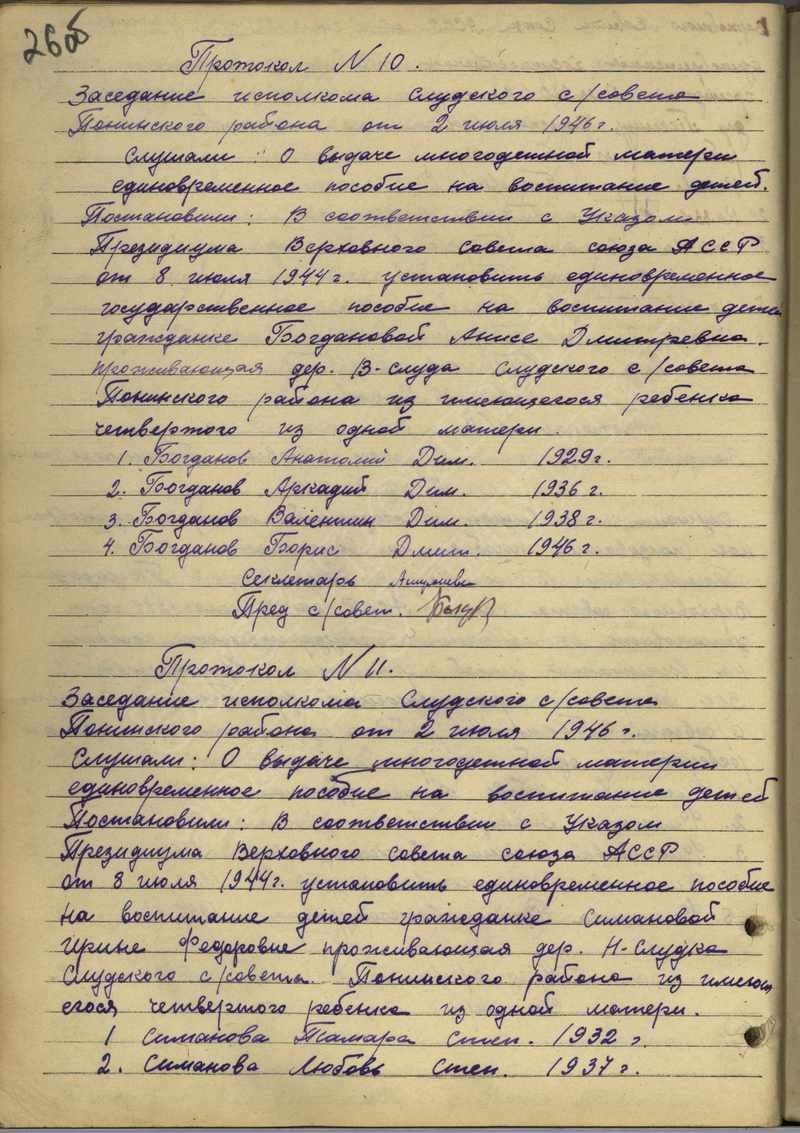 26об
Протокол N 10.
Заседание исполкома Слудского с/совета
Понинского района от 2 июля 1946 г.
Слушали: О выдаче многодетной матери
единовременное пособие на воспитание детей.
Постановили: В соответствии с Указом
Президиума Верховного Совета союза АССР
от 8 июля 1944 г. установить единовременное
государственное пособие на воспитание детей
гражданке Богдановой Анисе Дмитревна.
проживающая дер. В-слуда Слудского с/совета
Понинского района из имеющегося ребенка
четвертого из одной матери.
1. Богданов Анатолий Дим. 1929 г.
2. Богданов Аркадий Дим. 1936 г.
3. Богданов Валентин Дим. 1938 г.
4. Богданов Борис Дмит. 1946 г.
Секретарь
Пред с/совет.
Протокол N 11.
Заседание исполкома Слудского с/совета
Понинского района от 2 июля 1946 г.
Слушали: О выдаче многодетной матери
единовременное пособие на воспитание детей
Постановили: В соответствии с Указом
Президиума Верховного совета союза АССР
от 8 июля 1944 г. установить единовременное пособие
на воспитание детей гражданке Симановой
Ирине Федоровне проживающая дер. Н-Слудка
Слудского с/совета Понинского района из имеющ
егося четвертого ребенка из одной матери.
1 Симанова Тамара Степ. 1932 г.
2. Симанова Любовь Степ. 1937 г.